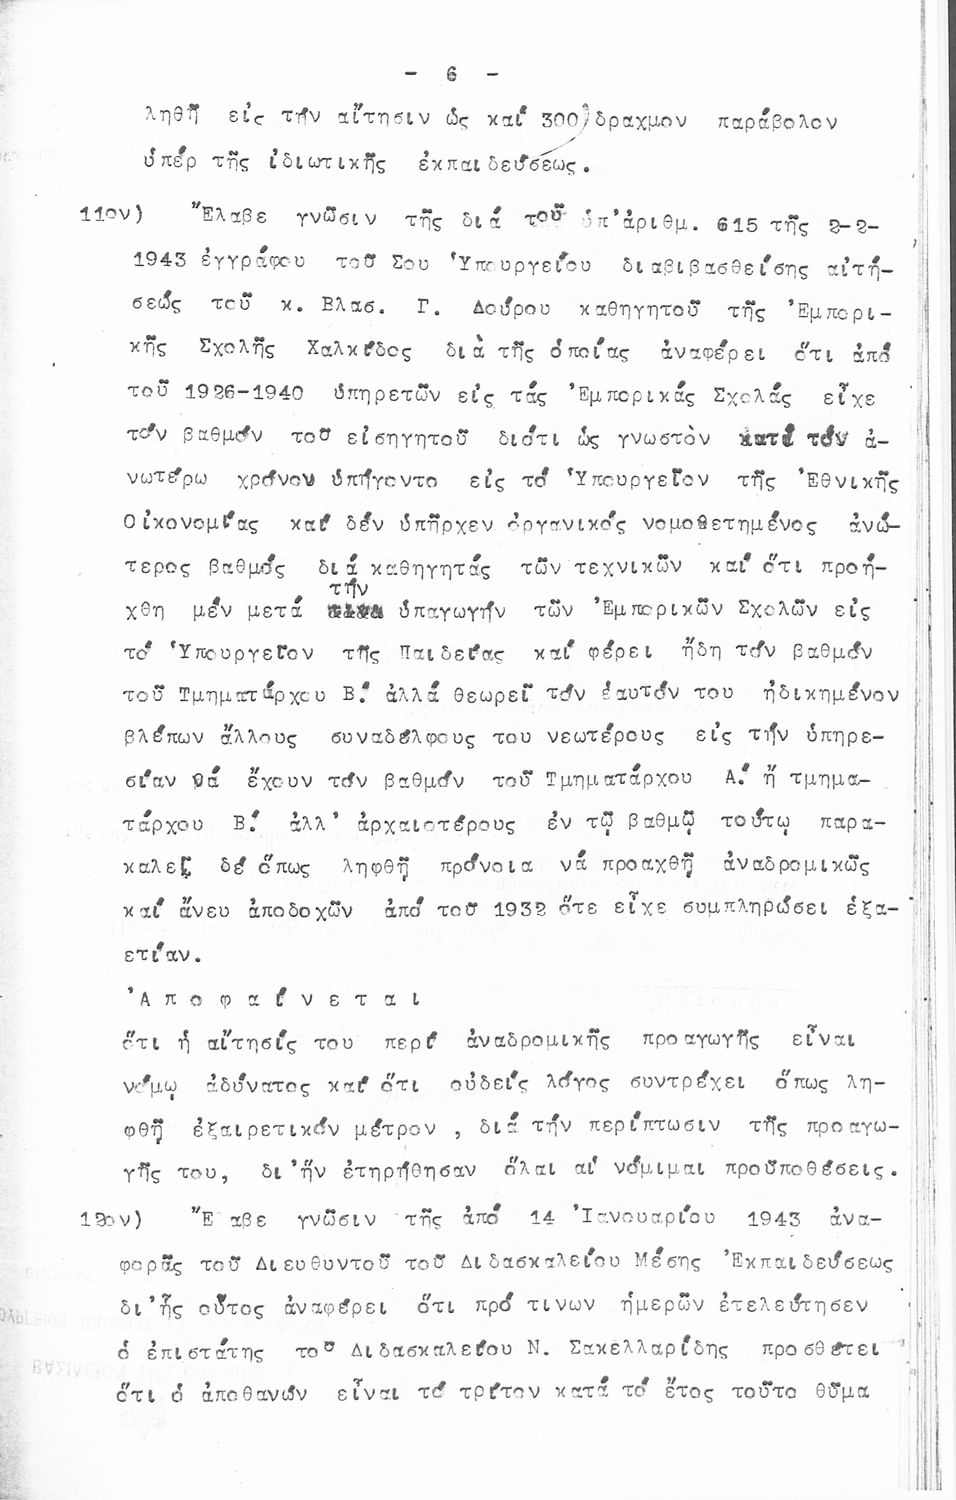 - 6 -
ληθῇ εἰς τήν αἴτησιν ὡς καί 300)δραχμον παράβολον
ὑπέρ τῆς ἰδιωτικῆς ἐκπαιδεύσεως.
11ον) Ἔλαβε γνῶσιν τῆς διά τοῦ ὑπ'ἀριθμ. 615 τῆς 2-2-
1943 ἐγγράφου τοῦ Σου Ὑπουργείου διαβιβασθείσης αἰτή-
σεώς τοῦ κ. Βλασ. Γ. Δούρου καθηγητοῦ τῆς Ἐμπορι-
κῆς Σχολῆς Χαλκίδος διὰ τῆς ὁποίας ἀναφέρει ὅτι ἀπό
τοῦ 1926-1940 ὑπηρετῶν εἰς τάς Ἐμπορικάς Σχολάς εἶχε
τόν βαθμόν τοῦ εἰσηγητοῦ διότι ὡς γνωστὸν κατά τόν ἀ-
νωτέρω χρόνον ὑπήγοντο εἰς τό Ὑπουργεῖον τῆς Ἐθνικῆς
Οἰκονομίας καί δέν ὑπῆρχεν ὀργανικός νομοθετημένος ἀνώ-
τερος βαθμός διά καθηγητάς τῶν τεχνικῶν καί ὅτι προή-
τήν
χθη μέν μετά ὑπαγωγήν τῶν Ἐμπορικῶν Σχολῶν εἰς
τό Ὑπουργεῖον τῆς Παιδείας καί φέρει ἤδη τόν βαθμόν
τοῦ Τμηματάρχου Β.' ἀλλά θεωρεῖ τόν ἑαυτόν του ἠδικημένον
βλέπων ἄλλους συναδέλφους του νεωτέρους εἰς τήν ὑπηρε-
σίαν θά ἔχουν τόν βαθμόν τοῦ Τμηματάρχου Α.' ἤ τμημα-
τάρχου Β.' ἀλλ' ἀρχαιοτέρους ἐν τῷ βαθμῷ τούτῳ παρα-
καλεῖ δέ ὅπως ληφθῇ πρόνοια νά προαχθῇ ἀναδρομικῶς
καί ἄνευ ἀποδοχῶν ἀπό τοῦ 1932 ὅτε εἶχε συμπληρώσει ἑξα-
ετίαν.
Ἀ π ο φ α ί ν ε τ α ι
ὅτι ἡ αἴτησίς του περί ἀναδρομικῆς προαγωγῆς εἶναι
νόμῳ ἀδύνατος καί ὅτι οὐδείς λόγος συντρέχει ὅπως λη-
φθῇ ἐξαιρετικόν μέτρον , διά τήν περίπτωσιν τῆς προαγω-
γῆς του, δι'ἥν ἐτηρήθησαν ὅλαι αἱ νόμιμαι προϋποθέσεις.
12ον) Ἔ αβε γνῶσιν τῆς ἀπό 14 Ἰανουαρίου 1943 ἀνα-
φορᾶς τοῦ Διευθυντοῦ τοῦ Διδασκαλείου Μέσης Ἐκπαιδεύσεως
δι'ἧς οὗτος ἀναφέρει ὅτι πρό τινων ἡμερῶν ἐτελεύτησεν
ὁ ἐπιστάτης τοῦ Διδασκαλείου Ν. Σακελλαρίδης προσθέτει
ὅτι ὁ ἀποθανών εἶναι τό τρίτον κατά τό ἔτος τοῦτο θῦμα